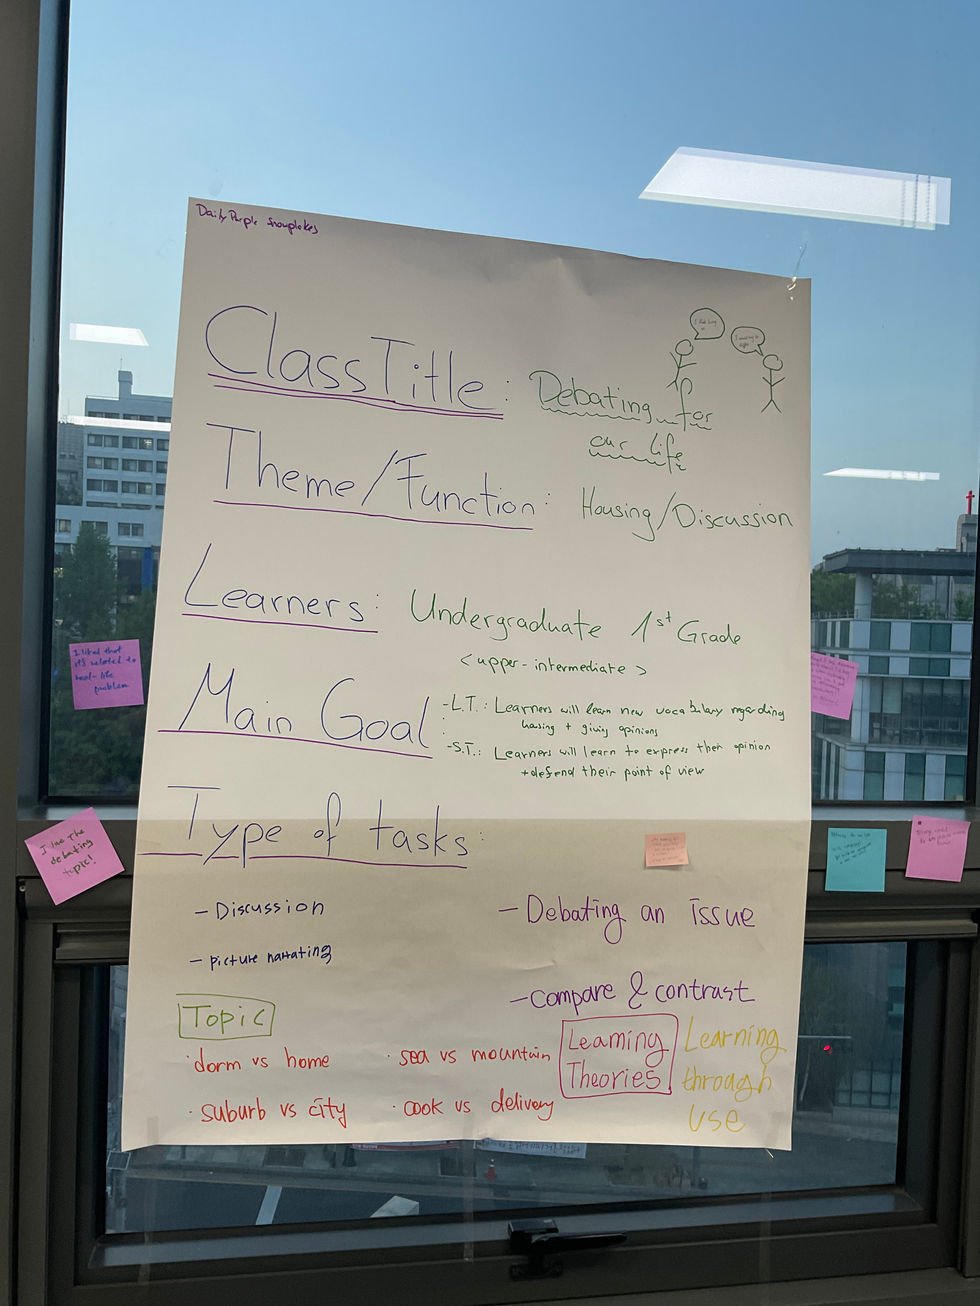 Daily Purple Snowflakes
Class Title: Debating for
our life
Theme/Function: Housing/Discussion
Learners: Undergraduate 1st Grade
<upper-intermediate>
Main Goal
-L.T.: Learners will learn new vocabulary regarding
housing + giving opinions
-S.T.: Learners will learn to express their opinion
+defend their point of view
Type of tasks:
- Discussion
- picture narrating
- Debating an issue
- compare & contrast
Topic
· dorm vs home
· sea vs mountain
· suburb vs city
· cook vs delivery
Learning
Theories
Learning
through
use
I liked that
it's related to
real-life
problem
I like the
debating
topic!